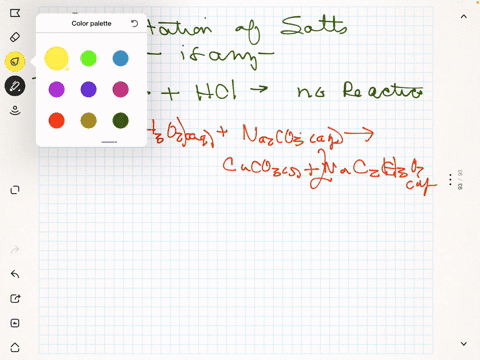 Color palette
tation of Salts
is any
+ HCl → no Reactio
H3O2)(aq) + Na2CO3(aq) →
CaCO3(s) + 2NaC2H3O2
(aq)